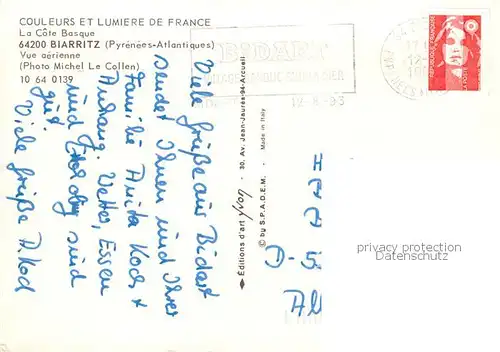 COULEURS ET LUMIERE DE FRANCE
La Côte Basque
64200 BIARRITZ (Pyrénées-Atlantiques)
Vue aérienne
(Photo Michel Le Collen)
10 64 0139
BIDART
12-8-93
REPUBLIQUE FRANÇAISE
LA POSTE
Viele Grüße aus Bidart
sendet Ihnen und Ihrer
Familie Anita Koch +
Anhang. Wetter, Essen
und sind
gut.
Viele Grüße A. Koch
Editions d'art yvon - 30, Av. Jean-Jaurès 94-Arcueil
© by S.P.A.D.E.M. - Made in Italy
D-5
privacy protection
Datenschutz